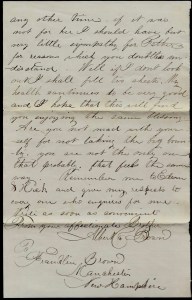 any other time if it was
not for her I should have but
very little sympathy for
for reasons which you doubtless
understand. Well if I don't stop
out I shall fill too sheets. My
health continues to be very good
and I hope that this will find
you enjoying the same blessing
Are you not mad with your
self for not taking the big
you are not the only one
that probably that feels the same
way. Remember me to
and give my respects to
any one who enquires for me
Write as soon as convenient
From your affectionate
Albert
Franklin Brown
Manchester
New Hampshire